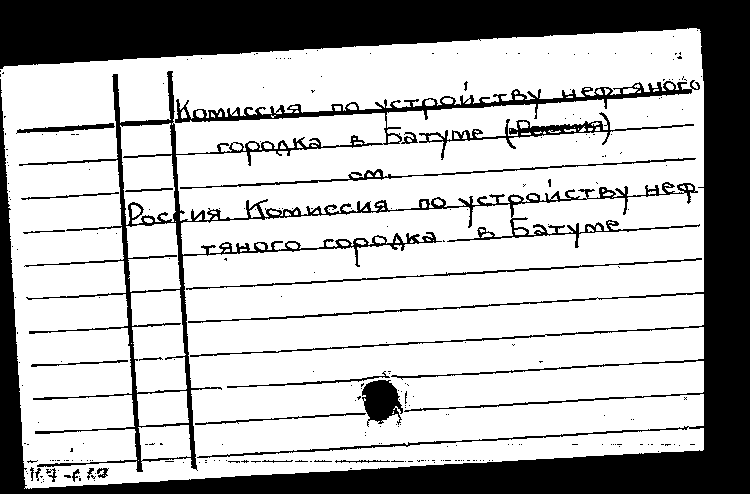 Комиссия по устройству нефтяного
городка в Батуме (Россия)
см.
Россия. Комиссия по устройству неф-
тяного городка в Батуме.